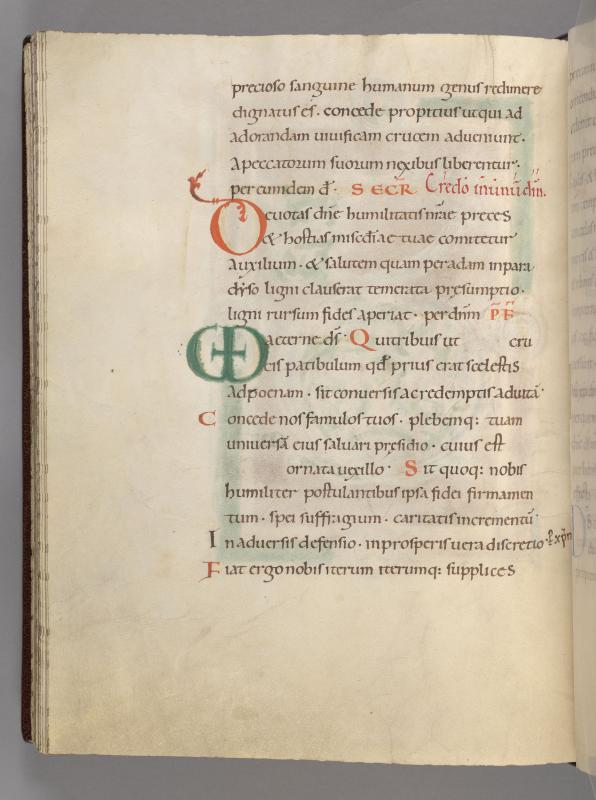 precioso sanguine humanum genus redimere
dignatus es̄. concede propitius ut qui ad
adorandam uiuificam crucem adueniunt.
apeccatorum suorum nexibus liberentur.
per eundem d̄. SECR̄ Credo in unū dm̄.
Deuotas dn̄e humilitatis nr̄ae preces
& hostias misc̄diae tuae comitetur
auxilium. & salutem quam per adam in para
dyso ligni clauserat temerata presumptio.
ligni rursum fides aperiat. per dnm̄ P̄F̄
aeterne ds̄. Qui tribuis ut cru
cis patibulum qd̄ prius erat scelestis
ad poenam. sit conuersis ac redemptis ad uitā.
Concede nos famulos tuos. plebemq: tuam
uniuersā eius saluari presidio. cuius est
ornata uexillo. Sit quoq: nobis
humiliter postulantibus ipsa fidei firmamen
tum. spei suffragium. caritatis incrementū.
In aduersis defensio. in prosperis uera discretio. ꝑ xp̄m
Fiat ergo nobis iterum iterumq: supplices